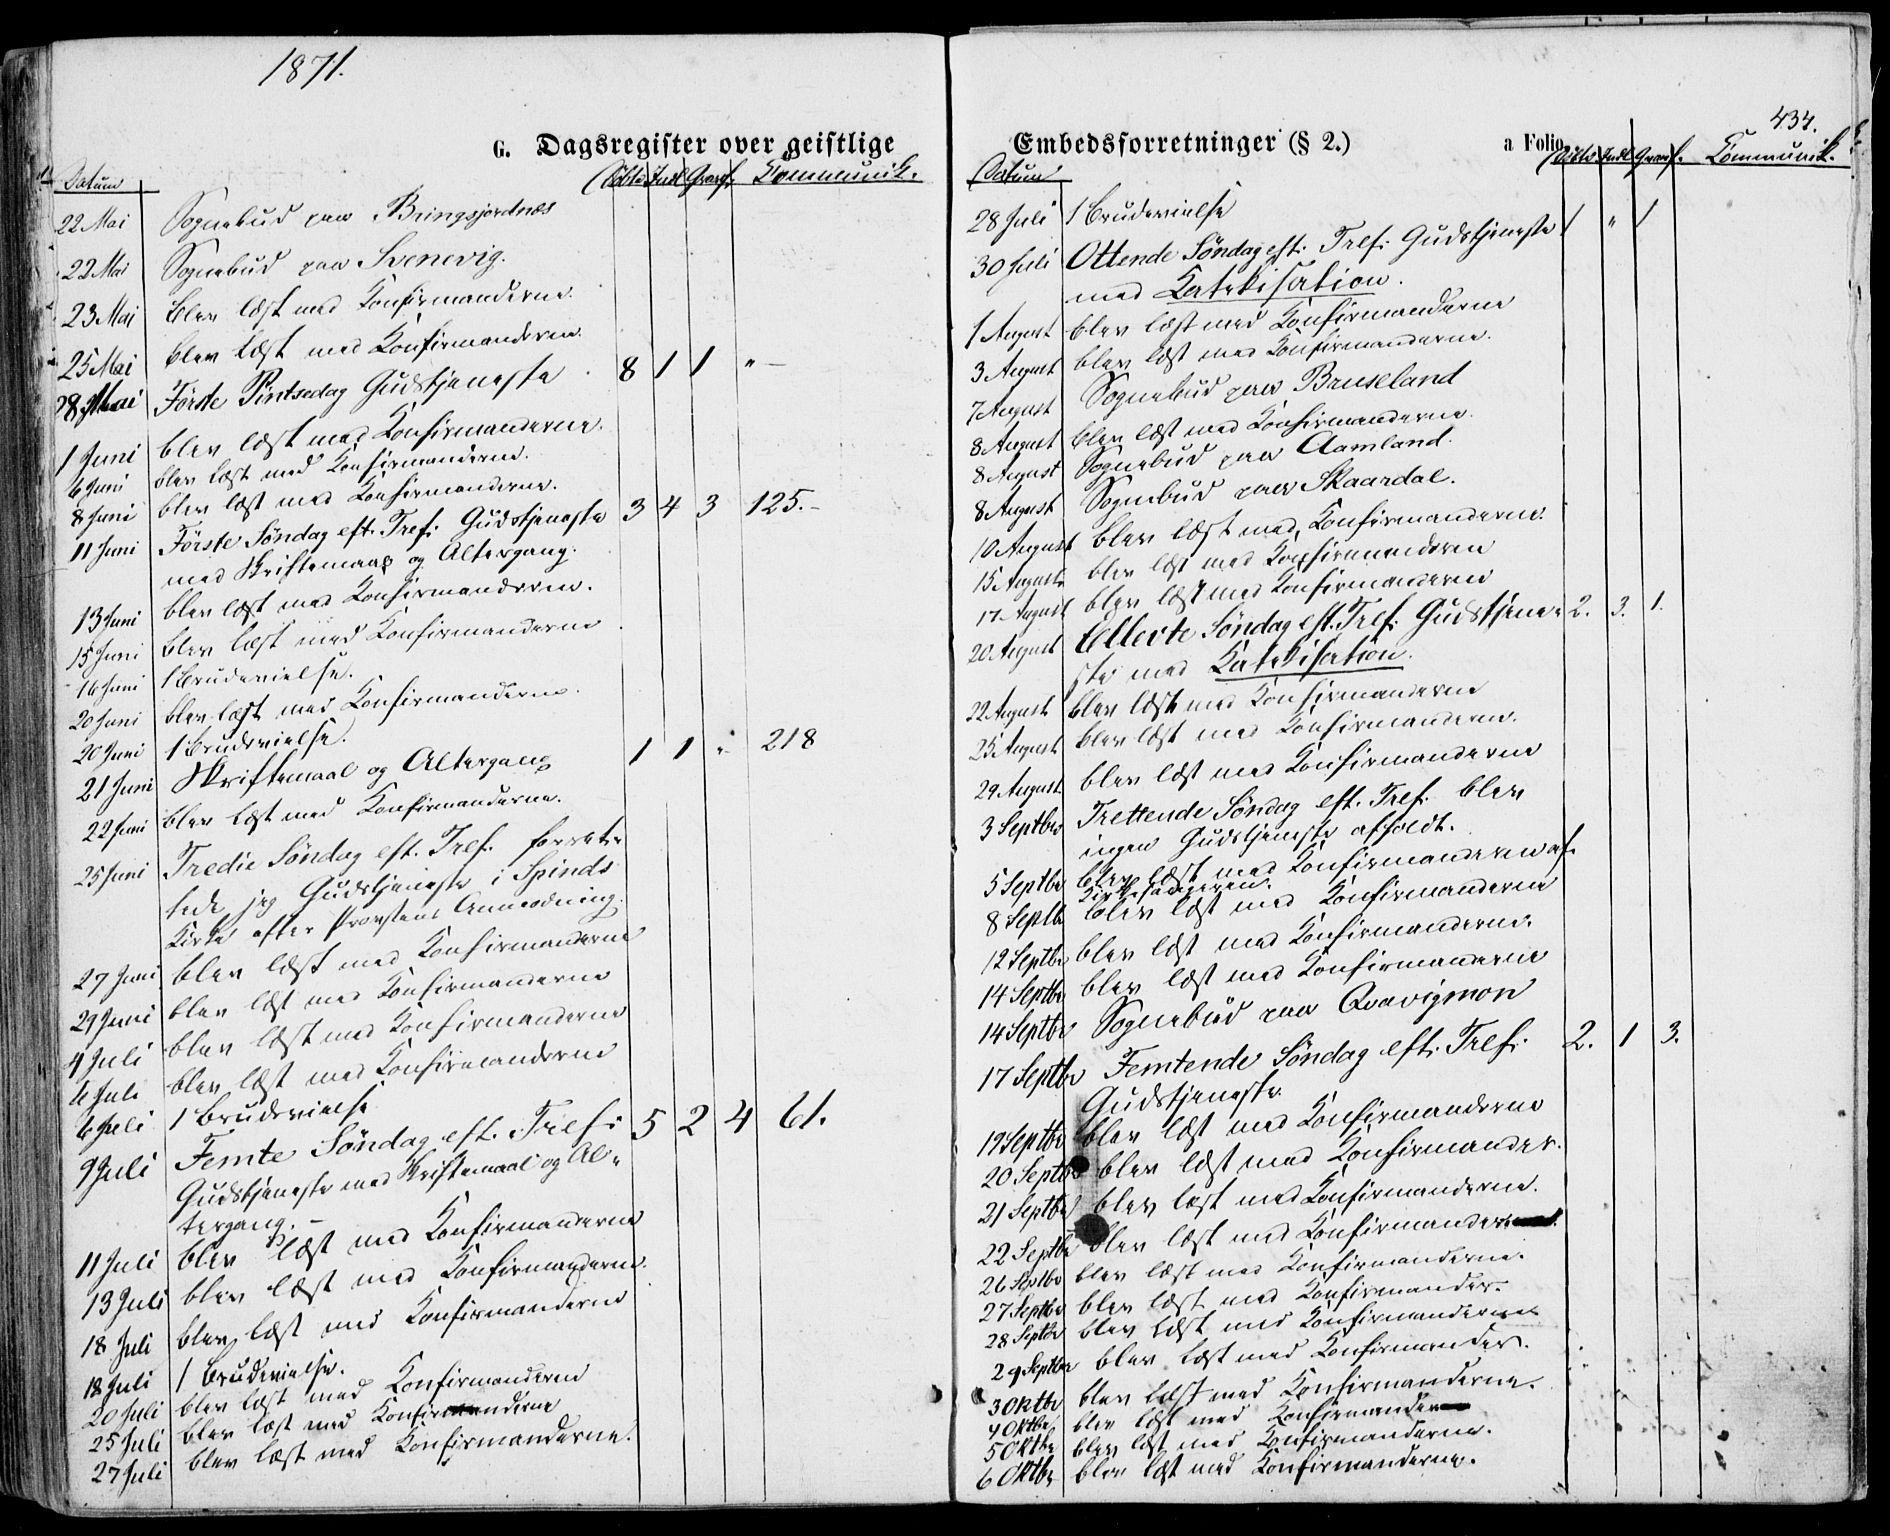 1871.
G. Dagsregister over geistlige
Datum Døbte Indl. Gravf. Kommunik.
22 Mai Sognebud paa Bringsjordnes
22 Mai Sognebud paa Svenevig.
23 Mai blev læst med Konfirmanderne.
25 Mai blev læst med Konfirmanderne.
28 Mai Første Pintsedag Gudstjeneste 8 1 1 " —
1 Juni blev læst med Konfirmanderne.
6 Juni blev læst med Konfirmanderne.
8 Juni blev læst med Konfirmanderne.
11 Juni Første Søndag eft. Tref. Gudstjeneste 3 4 3 125.-
med Skriftemaal og Altergang.
13 Juni blev læst med Konfirmanderne.
15 Juni blev læst med Konfirmanderne
16 Juni 1 Brudevielse.
20 Juni blev læst med Konfirmanderne.
20 Juni 1 Brudevielse.
21 Juni Skriftemaal og Altergang 1 1 " 218
22 Juni blev læst med Konfirmanderne.
25 Juni Tredie Søndag eft. Tref. forret-
tede jeg Gudstjeneste i Spinds
Kirke efter Provstens Anmodning.
27 Juni blev læst med Konfirmanderne
29 Juni blev læst med Konfirmanderne
4 Juli blev læst med Konfirmanderne
6 Juli blev læst med Konfirmanderne
6 Juli 1 Brudevielse
9 Juli Femte Søndag eft. Tref: 5 2 4 61.
Gudstjeneste med Skriftemaal og Al-
tergang. —
11 Juli blev læst med Konfirmanderne
13 Juli blev læst med Konfirmanderne.
18 Juli blev læst med Konfirmanderne
18 Juli 1 Brudevielse.
20 Juli blev læst med Konfirmanderne
25 Juli blev læst med Konfirmanderne
27 Juli blev læst med Konfirmanderne.
434.
Embedsforretninger (§ 2.) a Folio
Datum Døbte Indl. Gravf. Kommunik.
28 Juli 1 Brudevielse
30 Juli Ottende Søndag eft. Tref: Gudstjeneste 1 " 1
med Katekisation.
1 August blev læst med Konfirmanderne
3 August blev læst med Konfirmanderne.
7 August Sognebud paa Bruseland
8 August blev læst med Konfirmanderne.
8 August Sognebud paa Aamland.
8 August Sognebud paa Skaardal.
10 August blev læst med Konfirmanderne.
15 August blev læst med Konfirmanderne
17 August blev læst med Konfirmanderne
20 August Ellevte Søndag eft. Tref: Gudstjene- 2. 3. 1.
ste med Katekisation.
22 August blev læst med Konfirmanderne
25 August blev læst med Konfirmanderne.
29 August blev læst med Konfirmanderne
3 Septbr Trettende Søndag eft. Tref. blev
ingen Gudstjeneste afholdt.
5 Septbr blev læst med Konfirmanderne af
Kirkesangeren.
8 Septbr blev læst med Konfirmanderne
12 Septbr blev læst med Konfirmanderne.
14 Septbr blev læst med Konfirmanderne
14 Septbr Sognebud paa Qvavigmon
17 Septbr Femtende Søndag eft. Tref: 2. 1 3.
Gudstjeneste
19 Septbr blev læst med Konfirmanderne
20 Septbr blev læst med Konfirmander.
21 Septbr blev læst med Konfirmanderne.
22 Septbr blev læst med Konfirmander
26 Septbr blev læst med Konfirmanderne.
27 Septbr blev læst med Konfirmander.
28 Septbr blev læst med Konfirmanderne
29 Septbr blev læst med Konfirmander.
3 Oktbr blev læst med Konfirmanderne.
4 Oktbr blev læst med Konfirmander
5 Oktbr blev læst med Konfirmanderne.
6 Oktbr blev læst med Konfirmanderne.